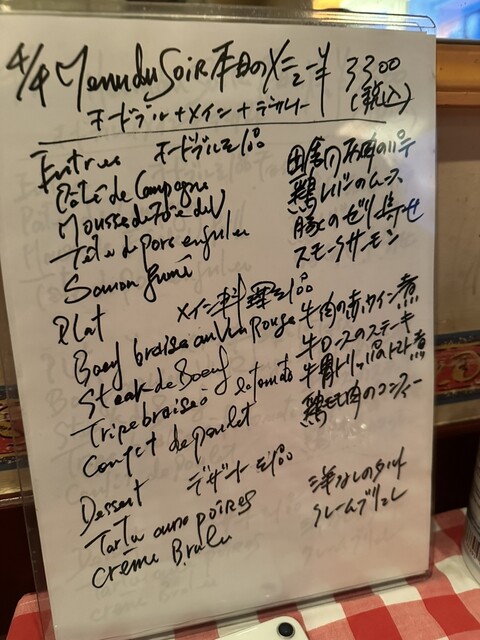 4/4 Menu du Soir 本日のメニュー ¥3300
オードブル+メイン+デザート (税込)
Entrees オードブルを1品
Pâté de Campagne 田舎風お肉のパテ
Mousse de Foie de V 鶏レバーのムース
Tête de porc en gelee 豚のゼリー寄せ
Saumon fumé スモークサーモン
Plat メイン料理を1品
Boeuf braise au Vin Rouge 牛肉の赤ワイン煮
Steak de Boeuf 牛ロースのステーキ
Tripe braisé à la tomato 牛胃トリッパのトマト煮
Confit de poulet 鶏もも肉のコンフィー
Dessert デザートを1品
Tarte aux poires 洋なしのタルト
Crème Brulee クレームブリュレ